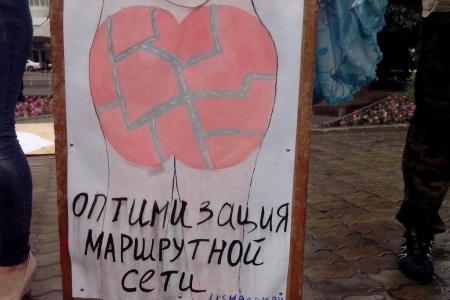 ОПТИМИЗАЦИЯ
МАРШРУТНОЙ
СЕТИ